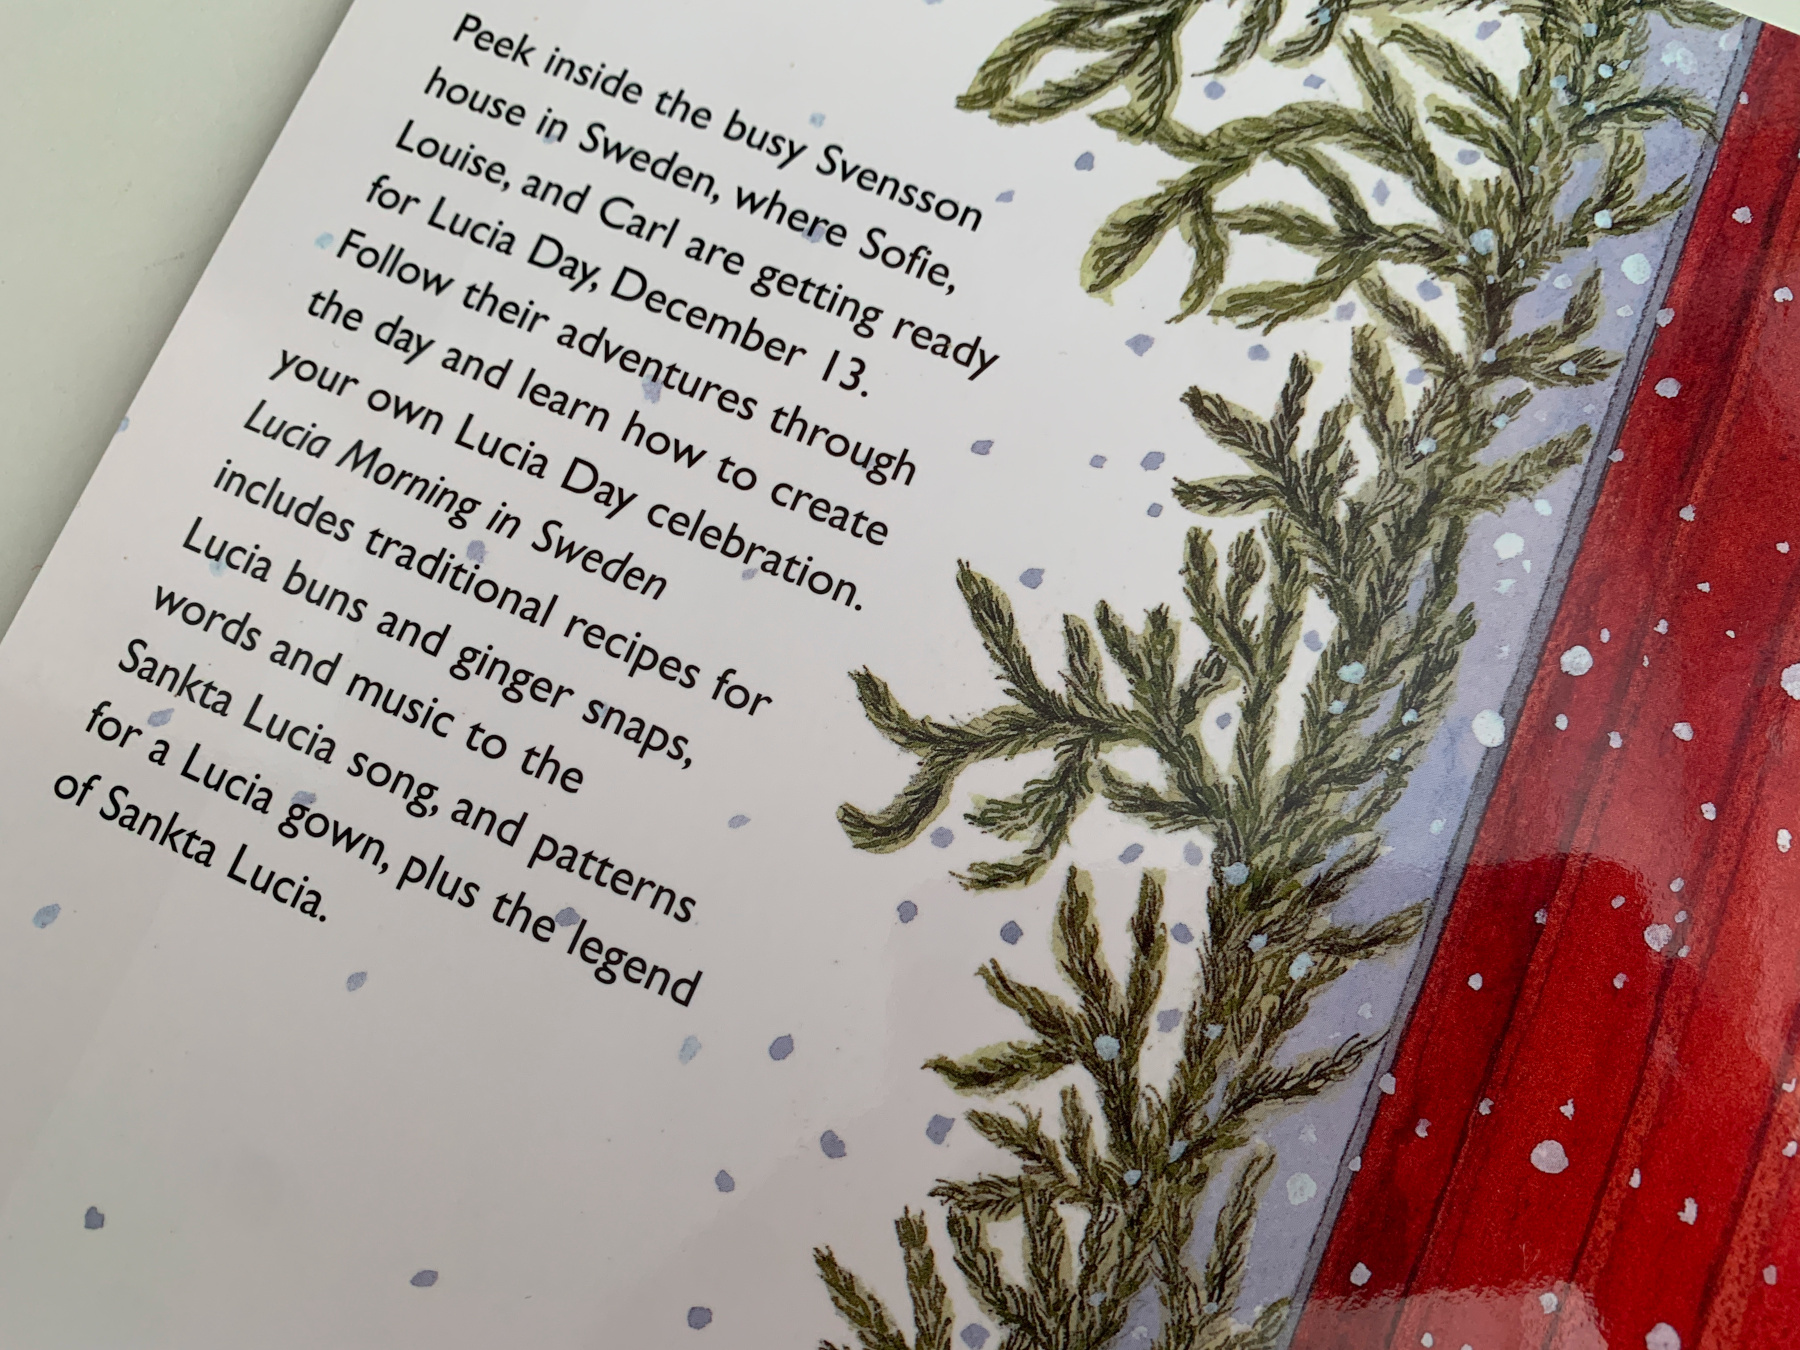 Peek inside the busy Svensson
house in Sweden, where Sofie,
Louise, and Carl are getting ready
for Lucia Day, December 13.
Follow their adventures through
the day and learn how to create
your own Lucia Day celebration.
Lucia Morning in Sweden
includes traditional recipes for
Lucia buns and ginger snaps,
words and music to the
Sankta Lucia song, and patterns
for a Lucia gown, plus the legend
of Sankta Lucia.